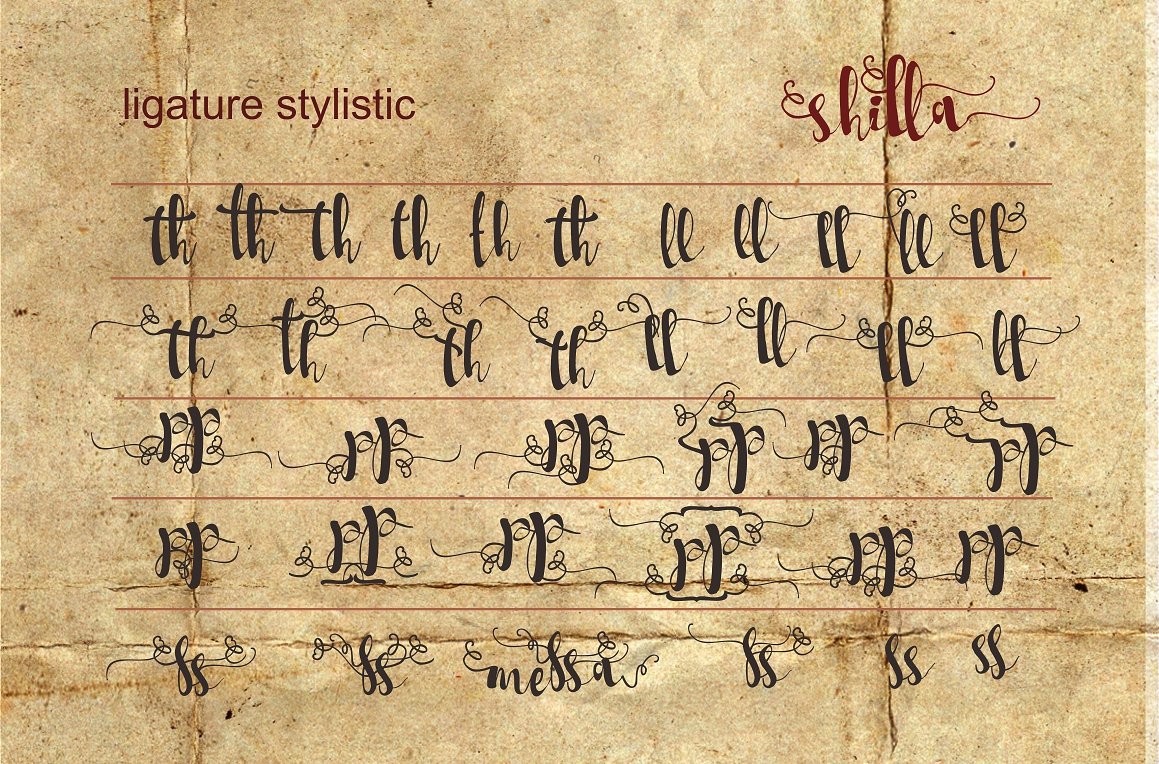 ligature stylistic shilla
th th th th th th ll ll ll ll ll
th th th th ll ll ll ll
pp pp pp pp pp pp
pp pp pp pp pp pp
ss ss messa ss ss ss